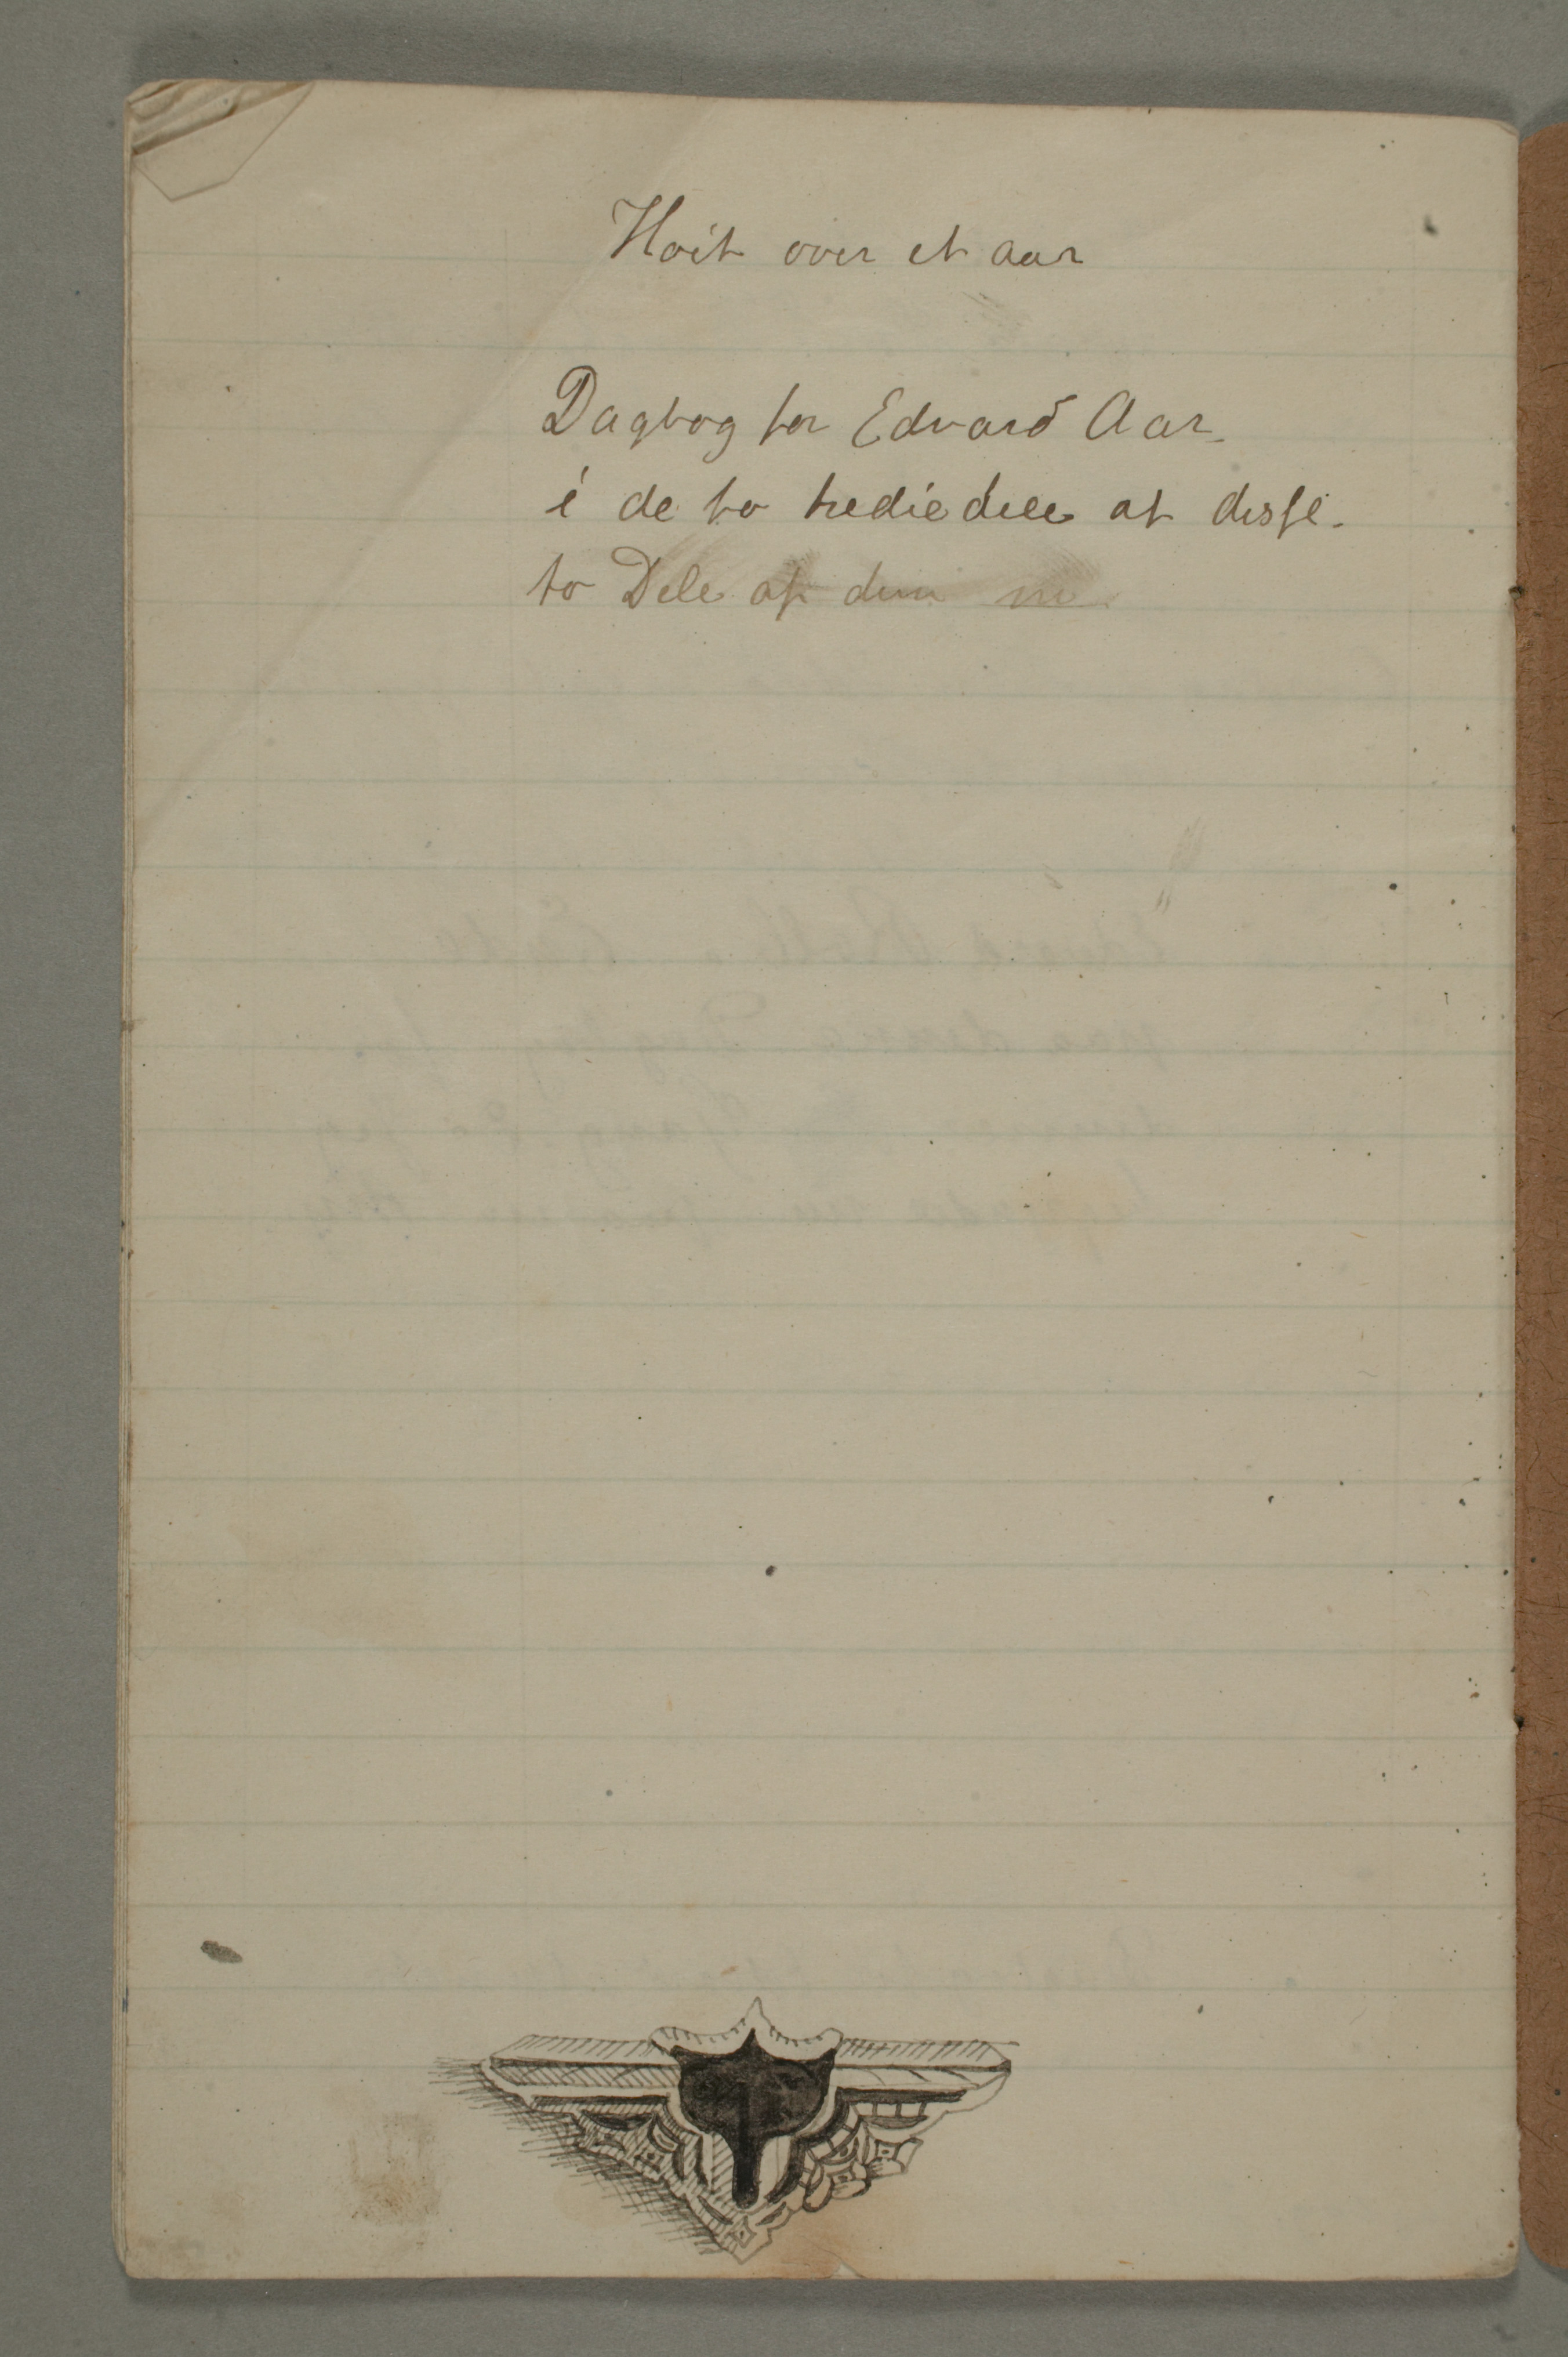 Hoit over et aar
Dagbog for Edvard Aar
i de to trediedele af disse.
to Dele af dem